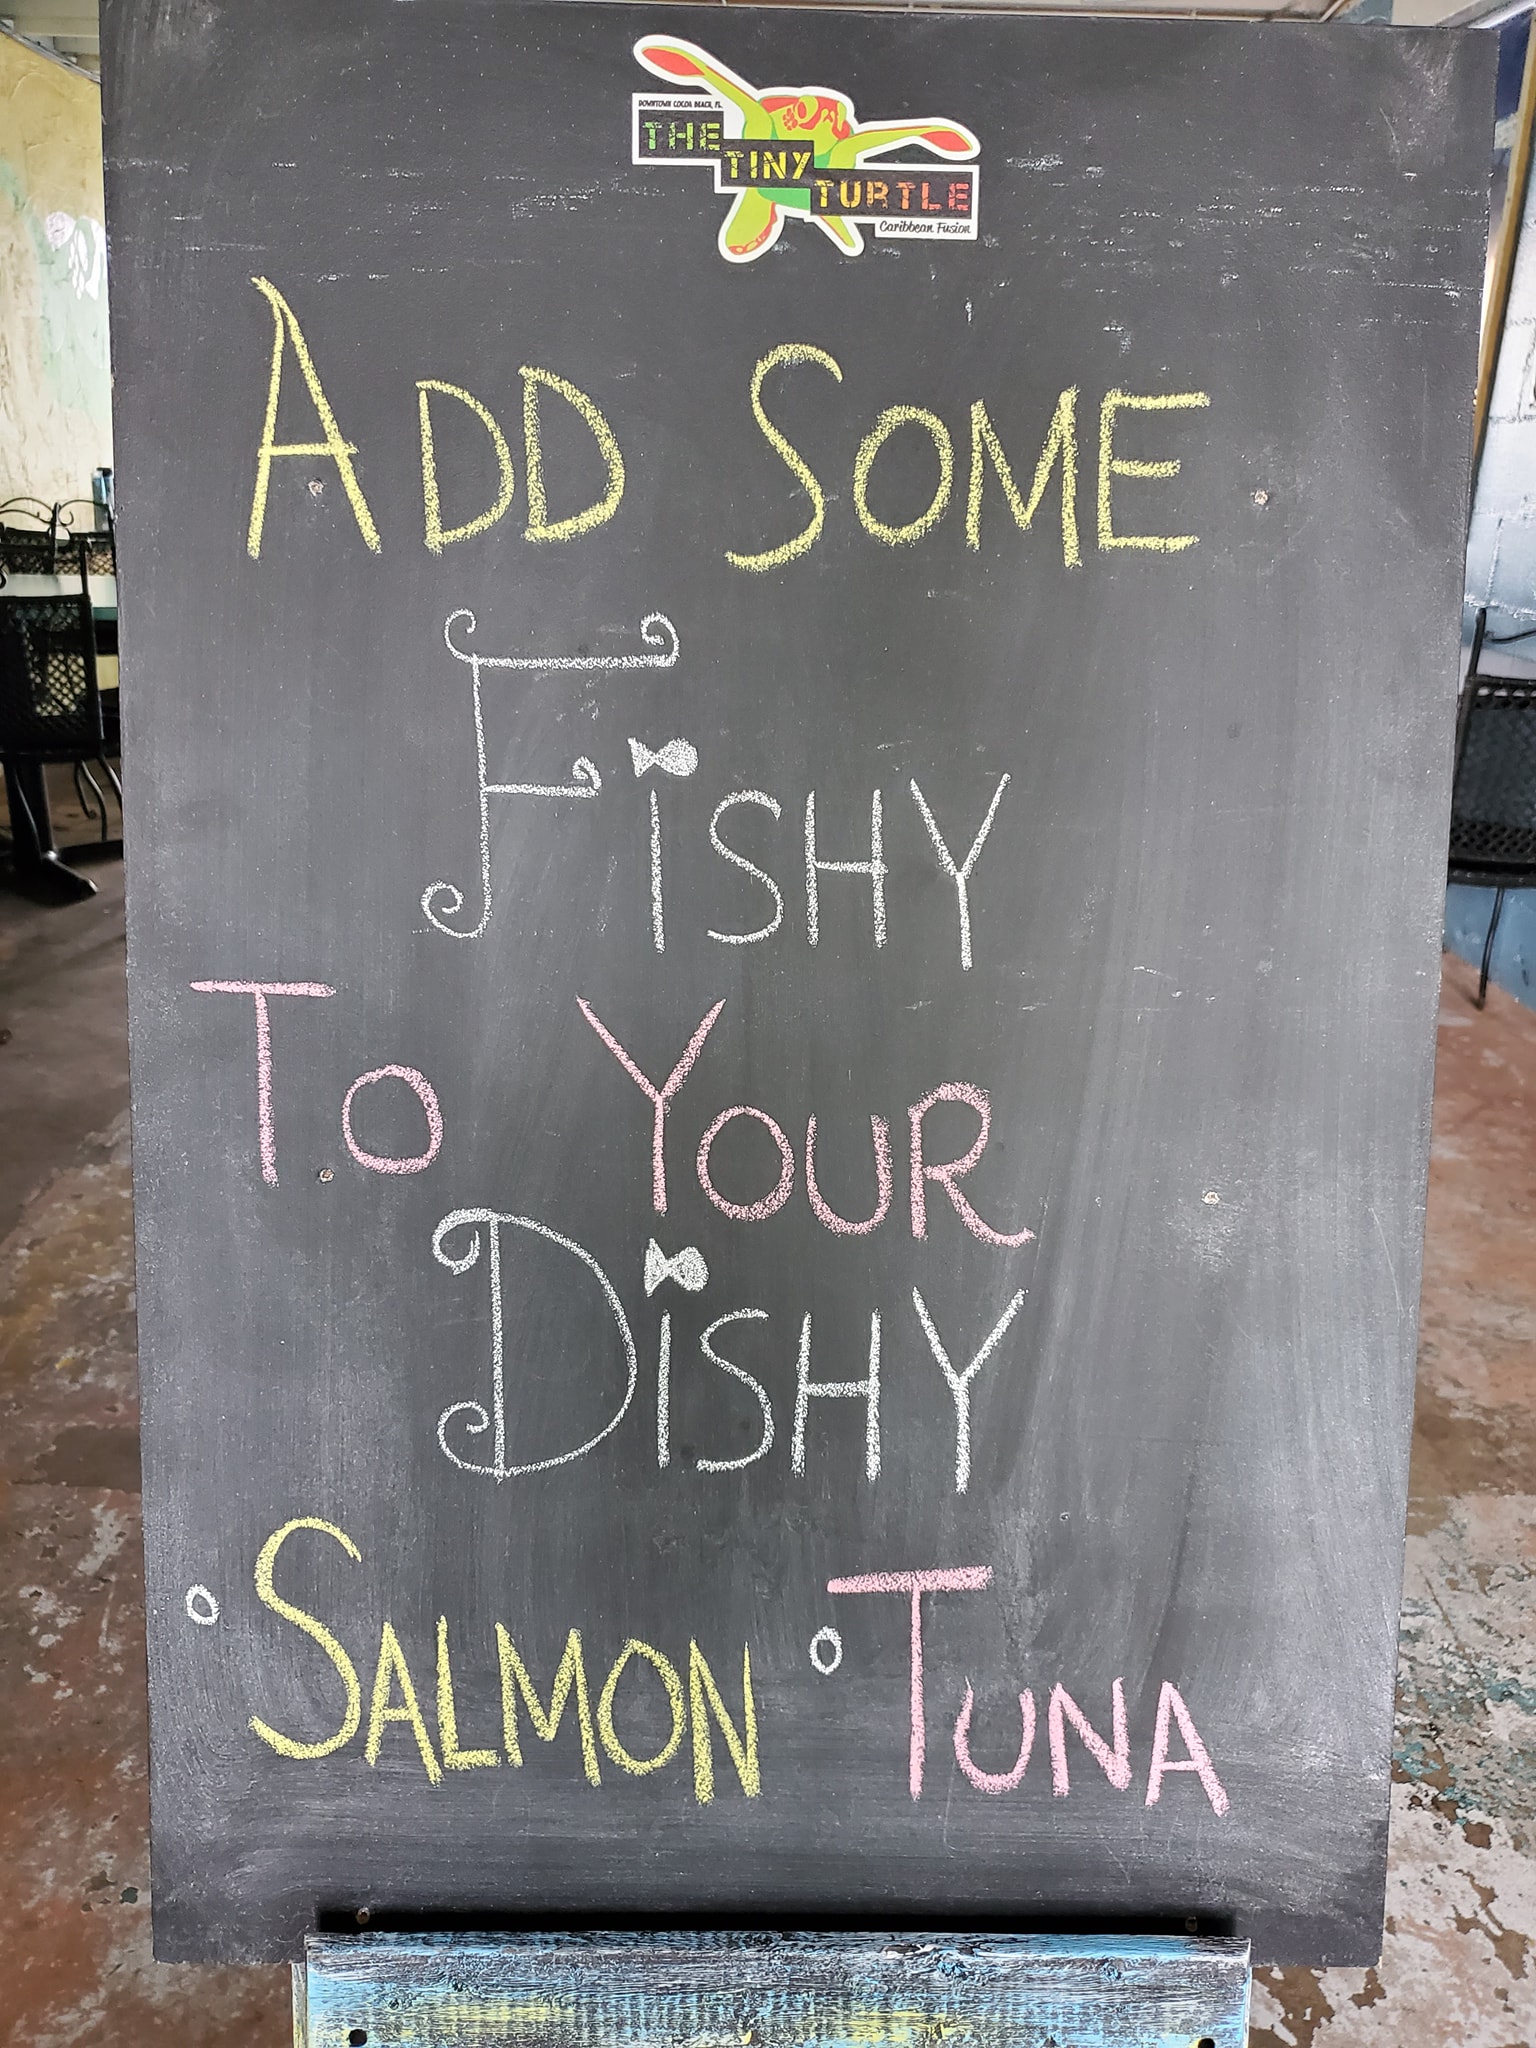 DOWNTOWN COCOA BEACH, FL.
THE
TINY
TURTLE
Caribbean Fusion
ADD SOME
FISHY
TO YOUR
DISHY
SALMON TUNA